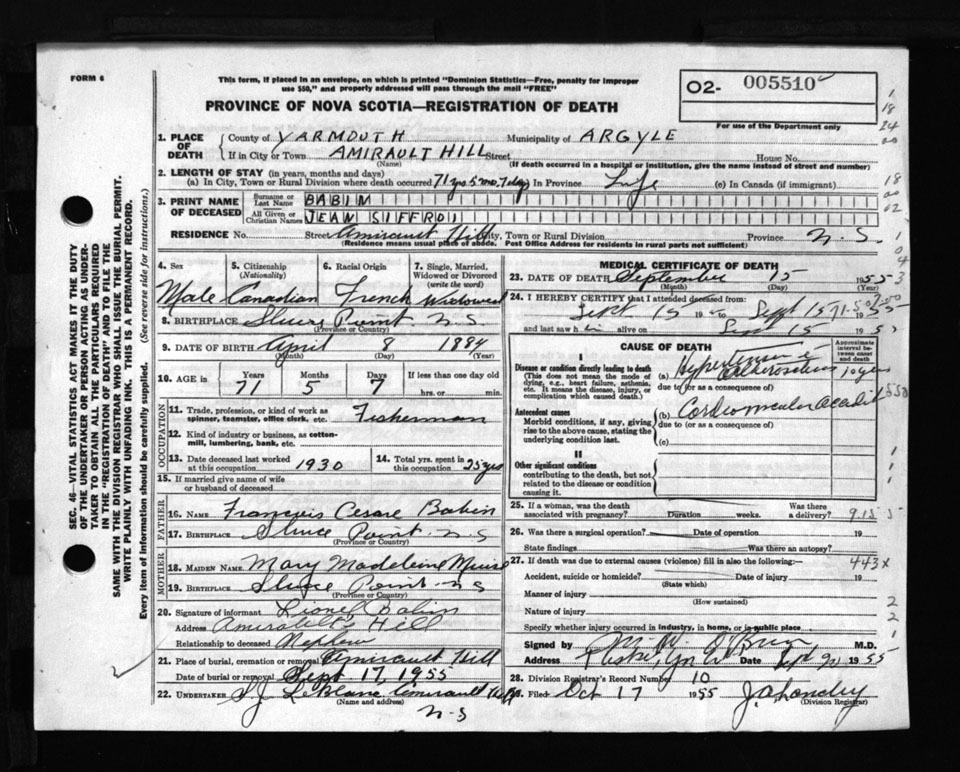 FORM 6
This form, if placed in an envelope, on which is printed "Dominion Statistics—Free, penalty for improper
use $50," and properly addressed will pass through the mail "FREE"
PROVINCE OF NOVA SCOTIA—REGISTRATION OF DEATH
O2- 005510
For use of the Department only
1. PLACE OF DEATH
County of YARMOUTH Municipality of ARGYLE
If in City or Town AMIRAULT HILL Street House No.
(Name) (If death occurred in a hospital or institution, give the name instead of street and number)
2. LENGTH OF STAY (in years, months and days)
(a) In City, Town or Rural Division where death occurred 71 yrs 5 mo. 7 days In Province Life (c) In Canada (if immigrant)
3. PRINT NAME OF DECEASED
Surname or Last Name BABIN
All Given or Christian Names JEAN
RESIDENCE No. Street Amirault Hill City, Town or Rural Division Province N.S.
(Residence means usual place of abode. Post Office Address for residents in rural parts not sufficient)
4. Sex
Male
5. Citizenship (Nationality)
Canadian
6. Racial Origin
French
7. Single, Married, Widowed or Divorced (write the word)
Widowed
8. BIRTHPLACE Sluice Point. N.S.
(Province or Country)
9. DATE OF BIRTH April 8 1884
(Month) (Day) (Year)
10. AGE in Years Months Days If less than one day old
71 5 7 hrs. or min.
OCCUPATION
11. Trade, profession, or kind of work as spinner, teamster, office clerk, etc. Fisherman
12. Kind of industry or business, as cotton-mill, lumbering, bank, etc.
13. Date deceased last worked at this occupation 1930
14. Total yrs. spent in this occupation 25 yrs
15. If married give name of wife or husband of deceased
FATHER
16. NAME Francois Cesare Babin
17. BIRTHPLACE Sluice Point. N.S.
(Province or Country)
MOTHER
18. MAIDEN NAME Mary Madeleine
19. BIRTHPLACE Sluice Point NS
(Province or Country)
20. Signature of informant Lionel Babin
Address Hill
Relationship to deceased Nephew
21. Place of burial, cremation or removal Amirault Hill
Date of burial or removal Sept 17, 1955
22. UNDERTAKER S.J. LeBlanc Amirault Hill
(Name and address)
N-S
MEDICAL CERTIFICATE OF DEATH
23. DATE OF DEATH September 15 1955
(Month) (Day) (Year)
24. I HEREBY CERTIFY that I attended deceased from:
Sept 15 19 to Sept 15 19
and last saw h alive on Sept 15 19
CAUSE OF DEATH
Approximate interval between onset and death
I
Disease or condition directly leading to death
(This does not mean the mode of dying, e.g., heart failure, asthenia, etc. It means the disease, injury, or complication which caused death.)
(a) Hypertension 10 years
due to (or as a consequence of)
Antecedent causes
Morbid conditions, if any, giving rise to the above cause, stating the underlying condition last.
(b)
due to (or as a consequence of)
(c)
II
Other significant conditions
contributing to the death, but not related to the disease or condition causing it.
25. If a woman, was the death associated with pregnancy? Duration weeks. Was there a delivery?
26. Was there a surgical operation? Date of operation 19
State findings Was there an autopsy?
27. If death was due to external causes (violence) fill in also the following:—
443X
Accident, suicide or homicide? Date of injury 19
(State which)
Manner of injury
(How sustained)
Nature of injury
Specify whether injury occurred in Industry, in home, or in public place
Signed by M.D.
Address Date 1955
28. Division Registrar's Record Number 10
29. Filed Oct 17 1955
(Division Registrar)
SEC. 46—VITAL STATISTICS ACT MAKES IT THE DUTY
OF THE UNDERTAKER OR PERSON ACTING AS UNDER-
TAKER TO OBTAIN ALL THE PARTICULARS REQUIRED
IN THE "REGISTRATION OF DEATH" AND TO FILE THE
SAME WITH THE DIVISION REGISTRAR WHO SHALL ISSUE THE BURIAL PERMIT.
WRITE PLAINLY WITH UNFADING INK. THIS IS A PERMANENT RECORD.
Every item of information should be carefully supplied. (See reverse side for instructions.)